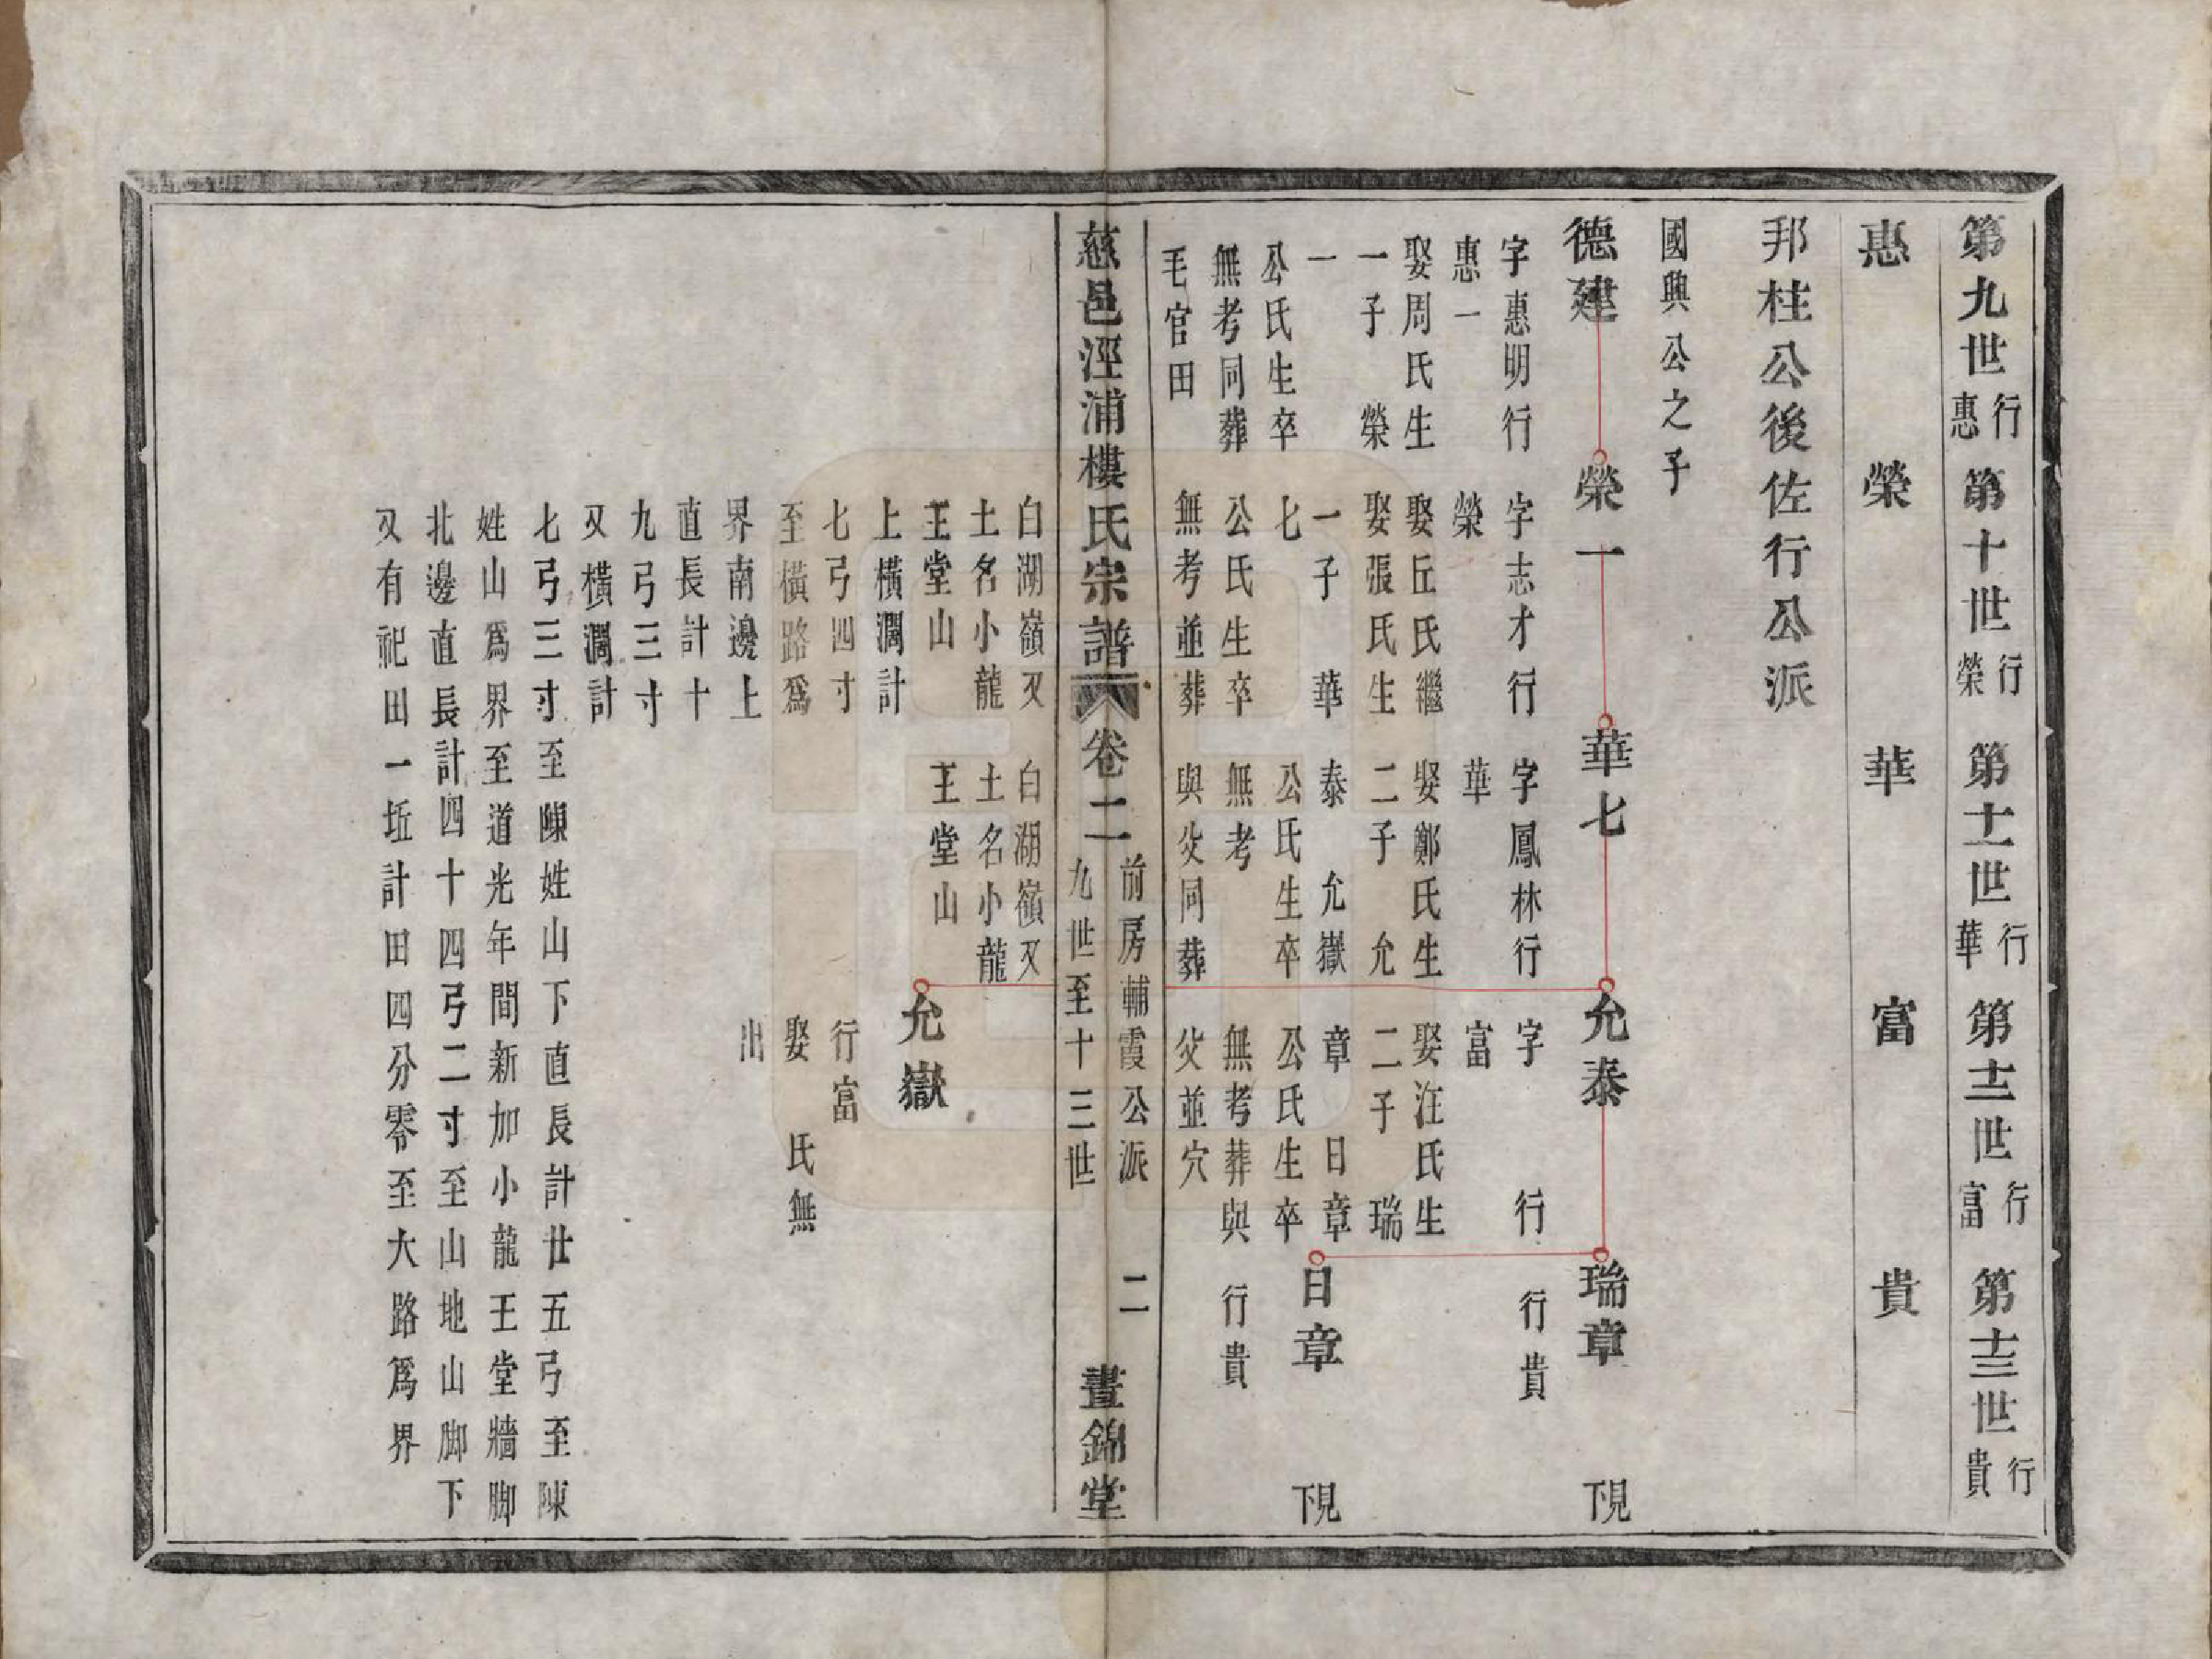 第九世行惠 第十世行榮 第十一世行華 第十二世行富 第十三世行貴
惠 榮 華 富 貴
邦柱公後佐行公派
國興公之子
德建
字惠明行
惠一
娶周氏生
一子 榮
一
公氏生卒
無考同葬
毛官田
榮一
字志才行
榮
娶丘氏繼
娶張氏生
一子 華
七
公氏生卒
無考並葬
白湖嶺又
土名小龍
王堂山
上橫濶計
七弓四寸
至橫路爲
界南邊上
直長計十
九弓三寸
又橫濶計
七弓三寸至陳姓山下直長計廿五弓至陳
姓山爲界至道光年間新加小龍王堂牆脚
北邊直長計四十四弓二寸至山地山脚下
又有祀田一坵計田四分零至大路爲界
華七
字鳳林行
華
娶鄭氏生
二子 允
泰 允嶽
公氏生卒
無考
與父同葬
白湖嶺又
土名小龍
王堂山
允泰
字 行
富
娶汪氏生
二子 瑞
章 日章
公氏生卒
無考葬與
父並穴
瑞章 下見
行貴
日章 下見
行貴
慈邑涇浦樓氏宗譜 卷二 前房輔霞公派 九世至十三世 二 晝錦堂
允嶽
行富
娶 氏無
出